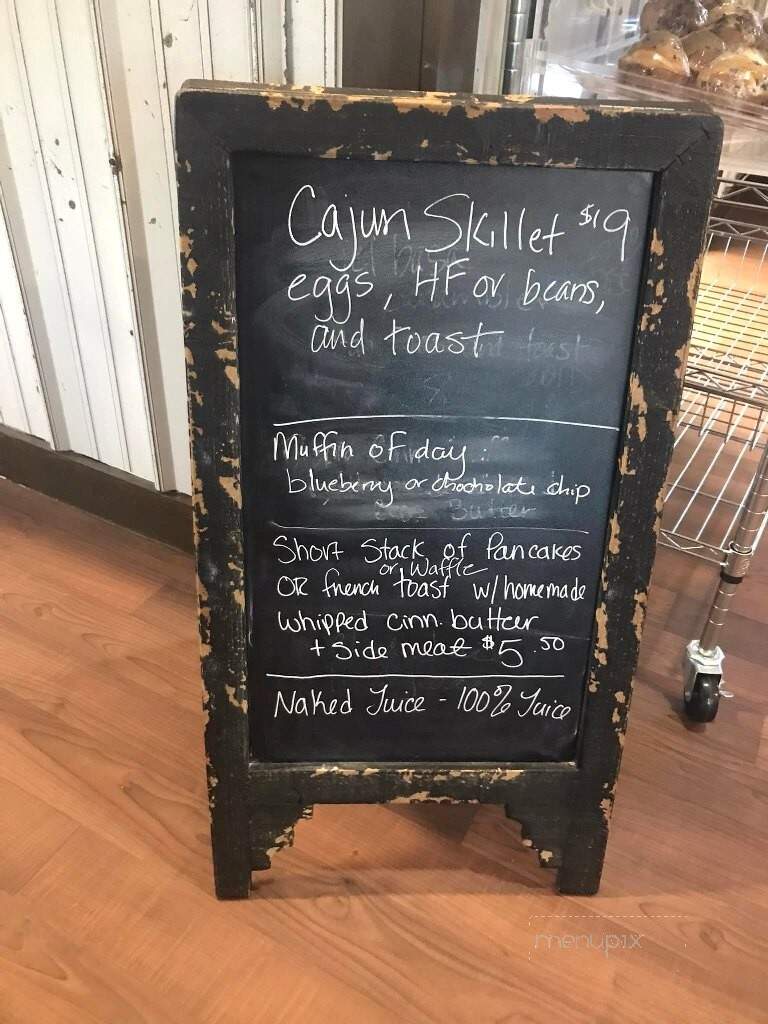 Cajun Skillet $19
eggs, HF or beans,
and toast
Muffin of day:
blueberry or chocholate chip
Short Stack of Pancakes
or Waffle
OR french toast w/homemade
whipped cinn. butter
+ Side meat $5.50
Naked Juice - 100% Juice
menupix